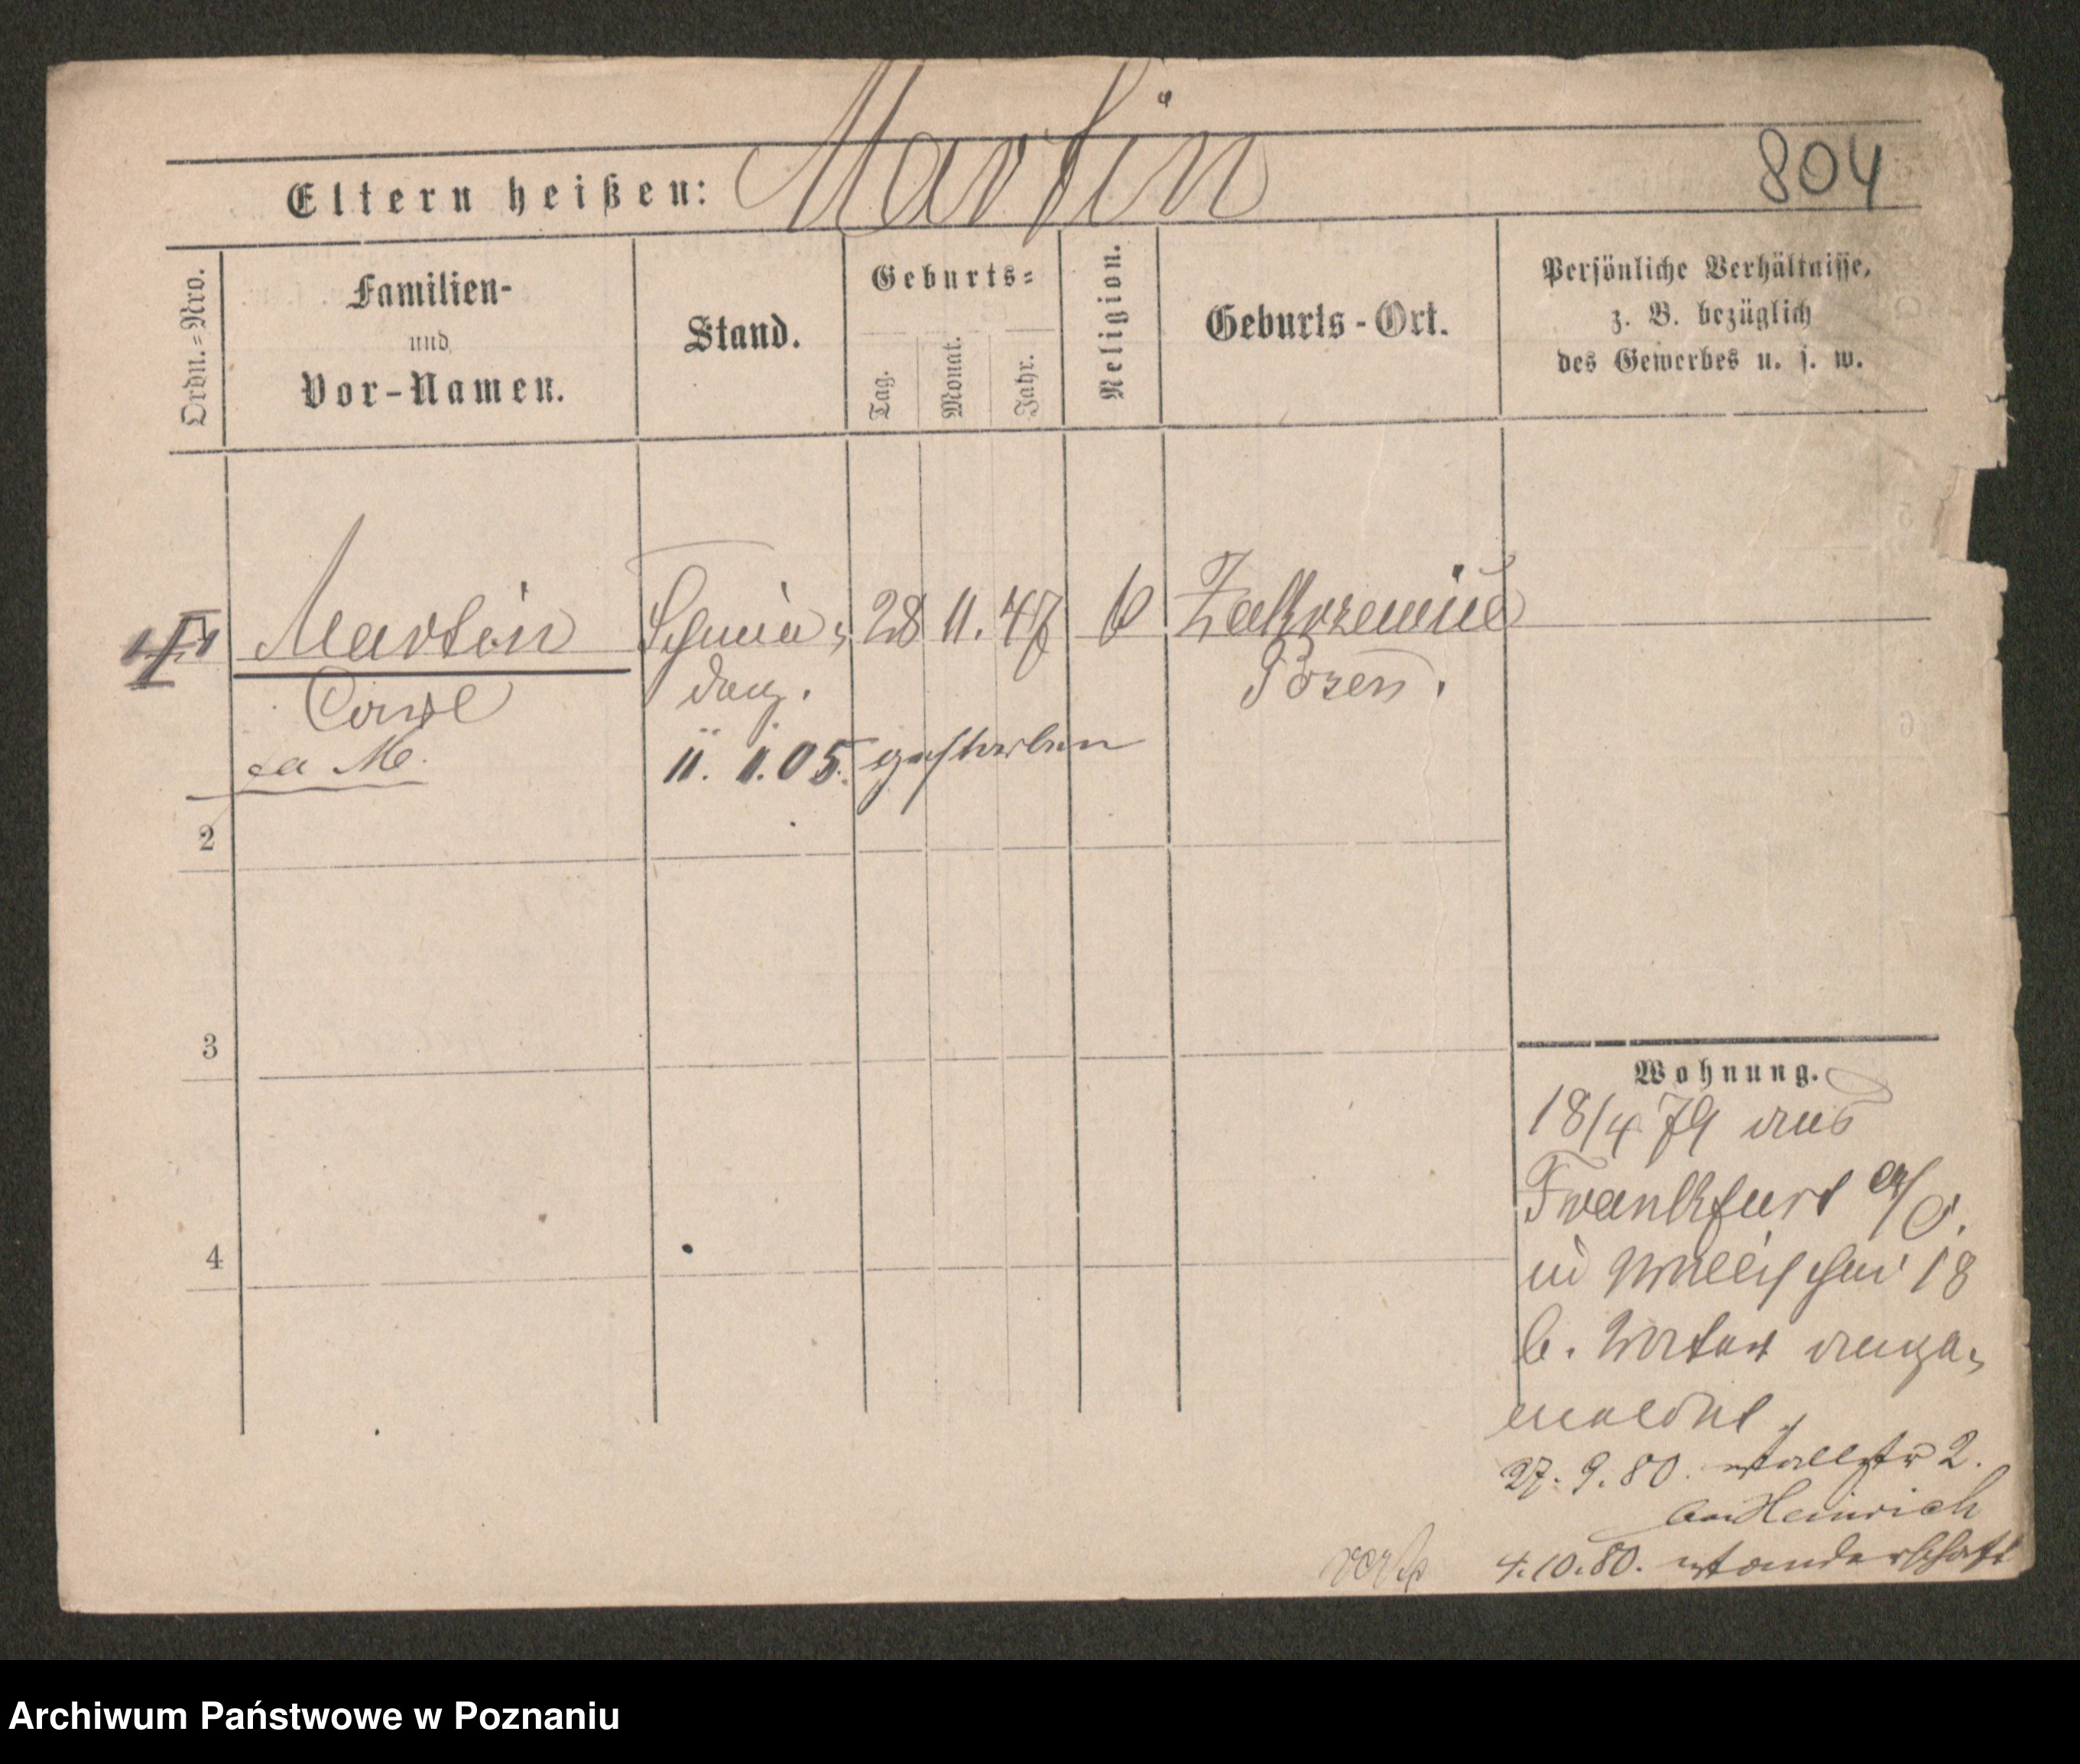 Martin
804
Eltern heißen:
Ordn.=Nro.
Familien-
und
Vor-Namen.
Stand.
Geburts=
Tag.
Monat.
Jahr.
Religion.
Geburts-Ort.
Persönliche Verhältnisse,
z. B. bezüglich
des Gewerbes u. s. w.
Martin
Carl
Schmie,
28 11. 47
Zakrzewice
Posen.
11. 1. 05. gestorben
2
3
4
Wohnung.
18/4 79 aus
Frankfurt a/O.
in Wallischei 18
b. Vater ange,
meldet
27. 9. 80. Wallstr 2.
bei Heinrich
4. 10. 80. Wanderschaft
Archiwum Państwowe w Poznaniu